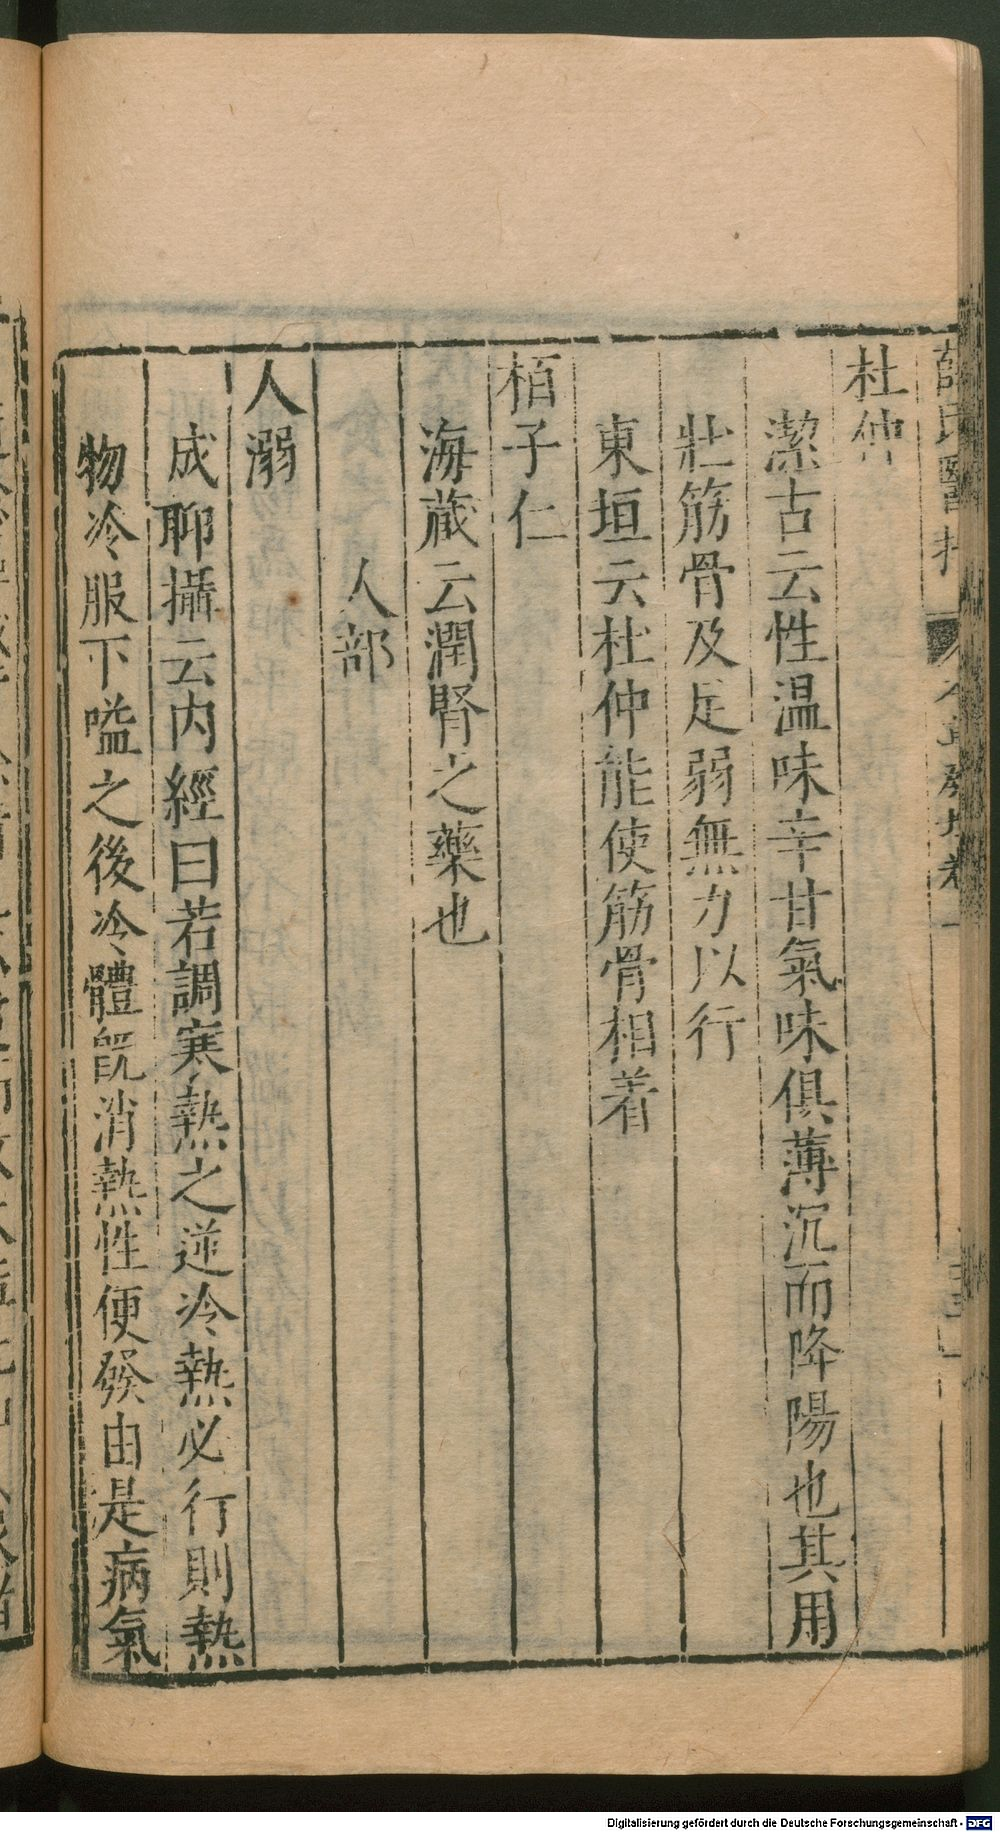 杜仲
潔古云性温味辛甘氣味俱薄沉而降陽也其用
壯筋骨及足弱無力以行
東垣云杜仲能使筋骨相着
栢子仁
海藏云潤腎之藥也
人部
人溺
成聊攝云内經曰若調寒熱之逆冷熱必行則熱
物冷服下嗌之後冷體旣消熱性便發由是病氣
Digitalisierung gefördert durch die Deutsche Forschungsgemeinschaft - DFG